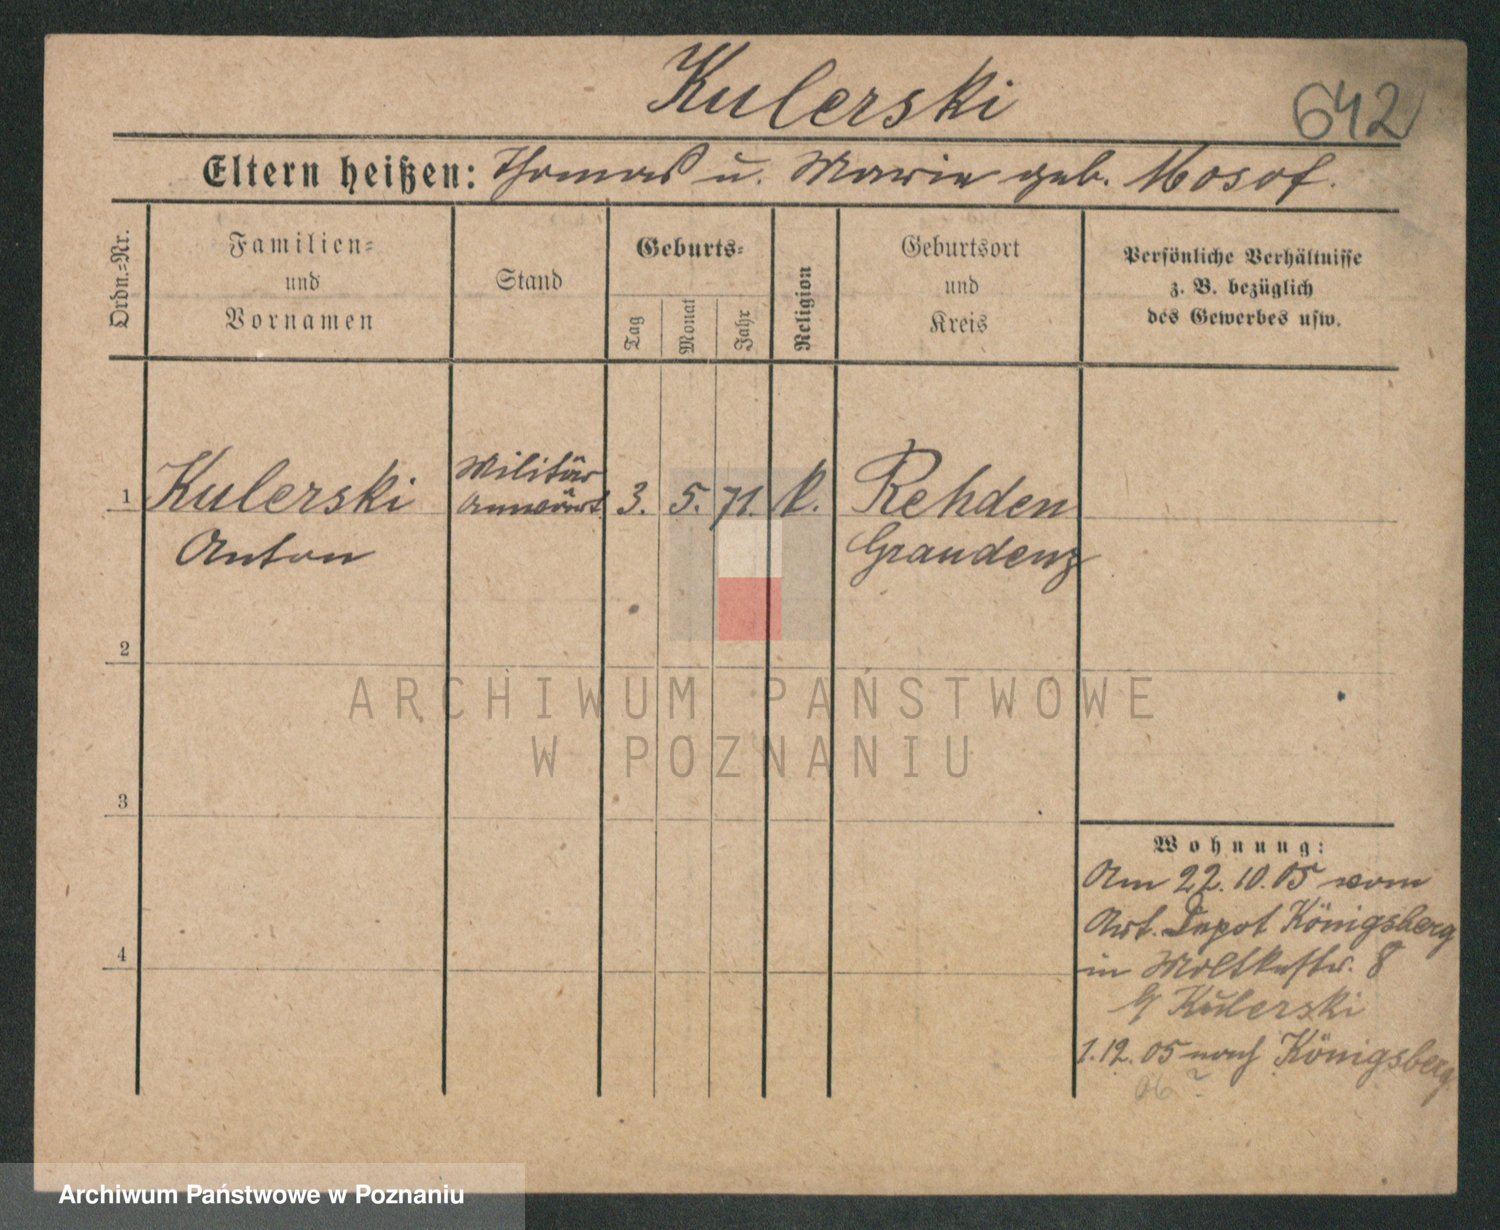 Kulerski
642
Eltern heißen: Thomas u. Marie geb. Mosof.
Ordn.-Nr.
Familien-
und
Vornamen
Stand
Geburts-
Tag
Monat
Jahr
Religion
Geburtsort
und
Kreis
Persönliche Verhältnisse
z. B. bezüglich
des Gewerbes usw.
1 Kulerski Militär 3. 5. 71. k. Rehden
Anton Anwärt. Graudenz
2
ARCHIWUM PAŃSTWOWE
W POZNANIU
3
Wohnung:
Am 22.10.05 vom
Art. Depot Königsberg
in Moltkestr. 8
b/ Kulerski
4
1.12.05 nach Königsberg
Archiwum Państwowe w Poznaniu